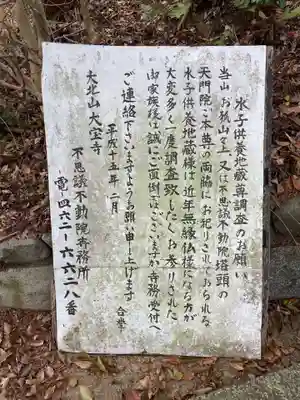 水子供養地蔵尊調査のお願い
当山お狐山の上又は不思議不動院塔頭の
天門院ご本尊の両脇にお祀りされておられる
水子供養地蔵様は近年無縁仏様になる方が
大変多く一度調査致したくお参りされた
御家族様は誠にご面倒ではございますが寺務受付へ
ご連絡下さいますようお願い申し上げます
合掌
平成十五年二月
大北山大宝寺
不思議不動院寺務所
電四六二ー六六二八番